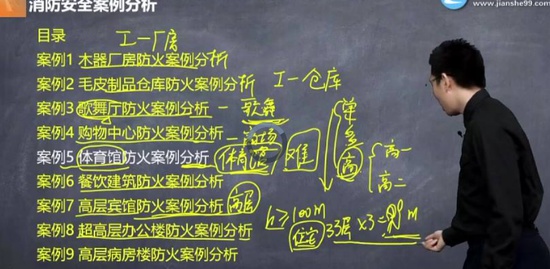 消防安全案例分析
www.jianshe99.com
目录
工一厂房
案例1 木器厂房防火案例分析
案例2 毛皮制品仓库防火案例分析 工一仓库
案例3 歌舞厅防火案例分析 一 歌舞
案例4 购物中心防火案例分析 一 商场
案例5 体育馆防火案例分析 体育馆 难
单
多
高 高一
高二
案例6 餐饮建筑防火案例分析
案例7 高层宾馆防火案例分析 高层
h≥100m
案例8 超高层办公楼防火案例分析 住宅 33层×3=99m
案例9 高层病房楼防火案例分析